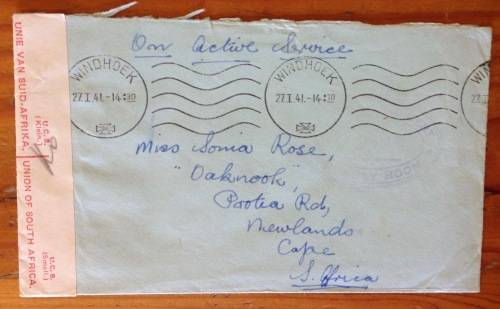 On Active Service
WINDHOEK
27.I.41.-14:30
WINDHOEK
27.I.41.-14:30
Miss Sonia Rose,
"Oaknook",
Protea Rd,
Newlands
Cape
S. Africa
UNIE VAN SUID-AFRIKA.
UNION OF SOUTH AFRICA.
U.C.S.
(Klein.)
U.C.S.
(Small.)